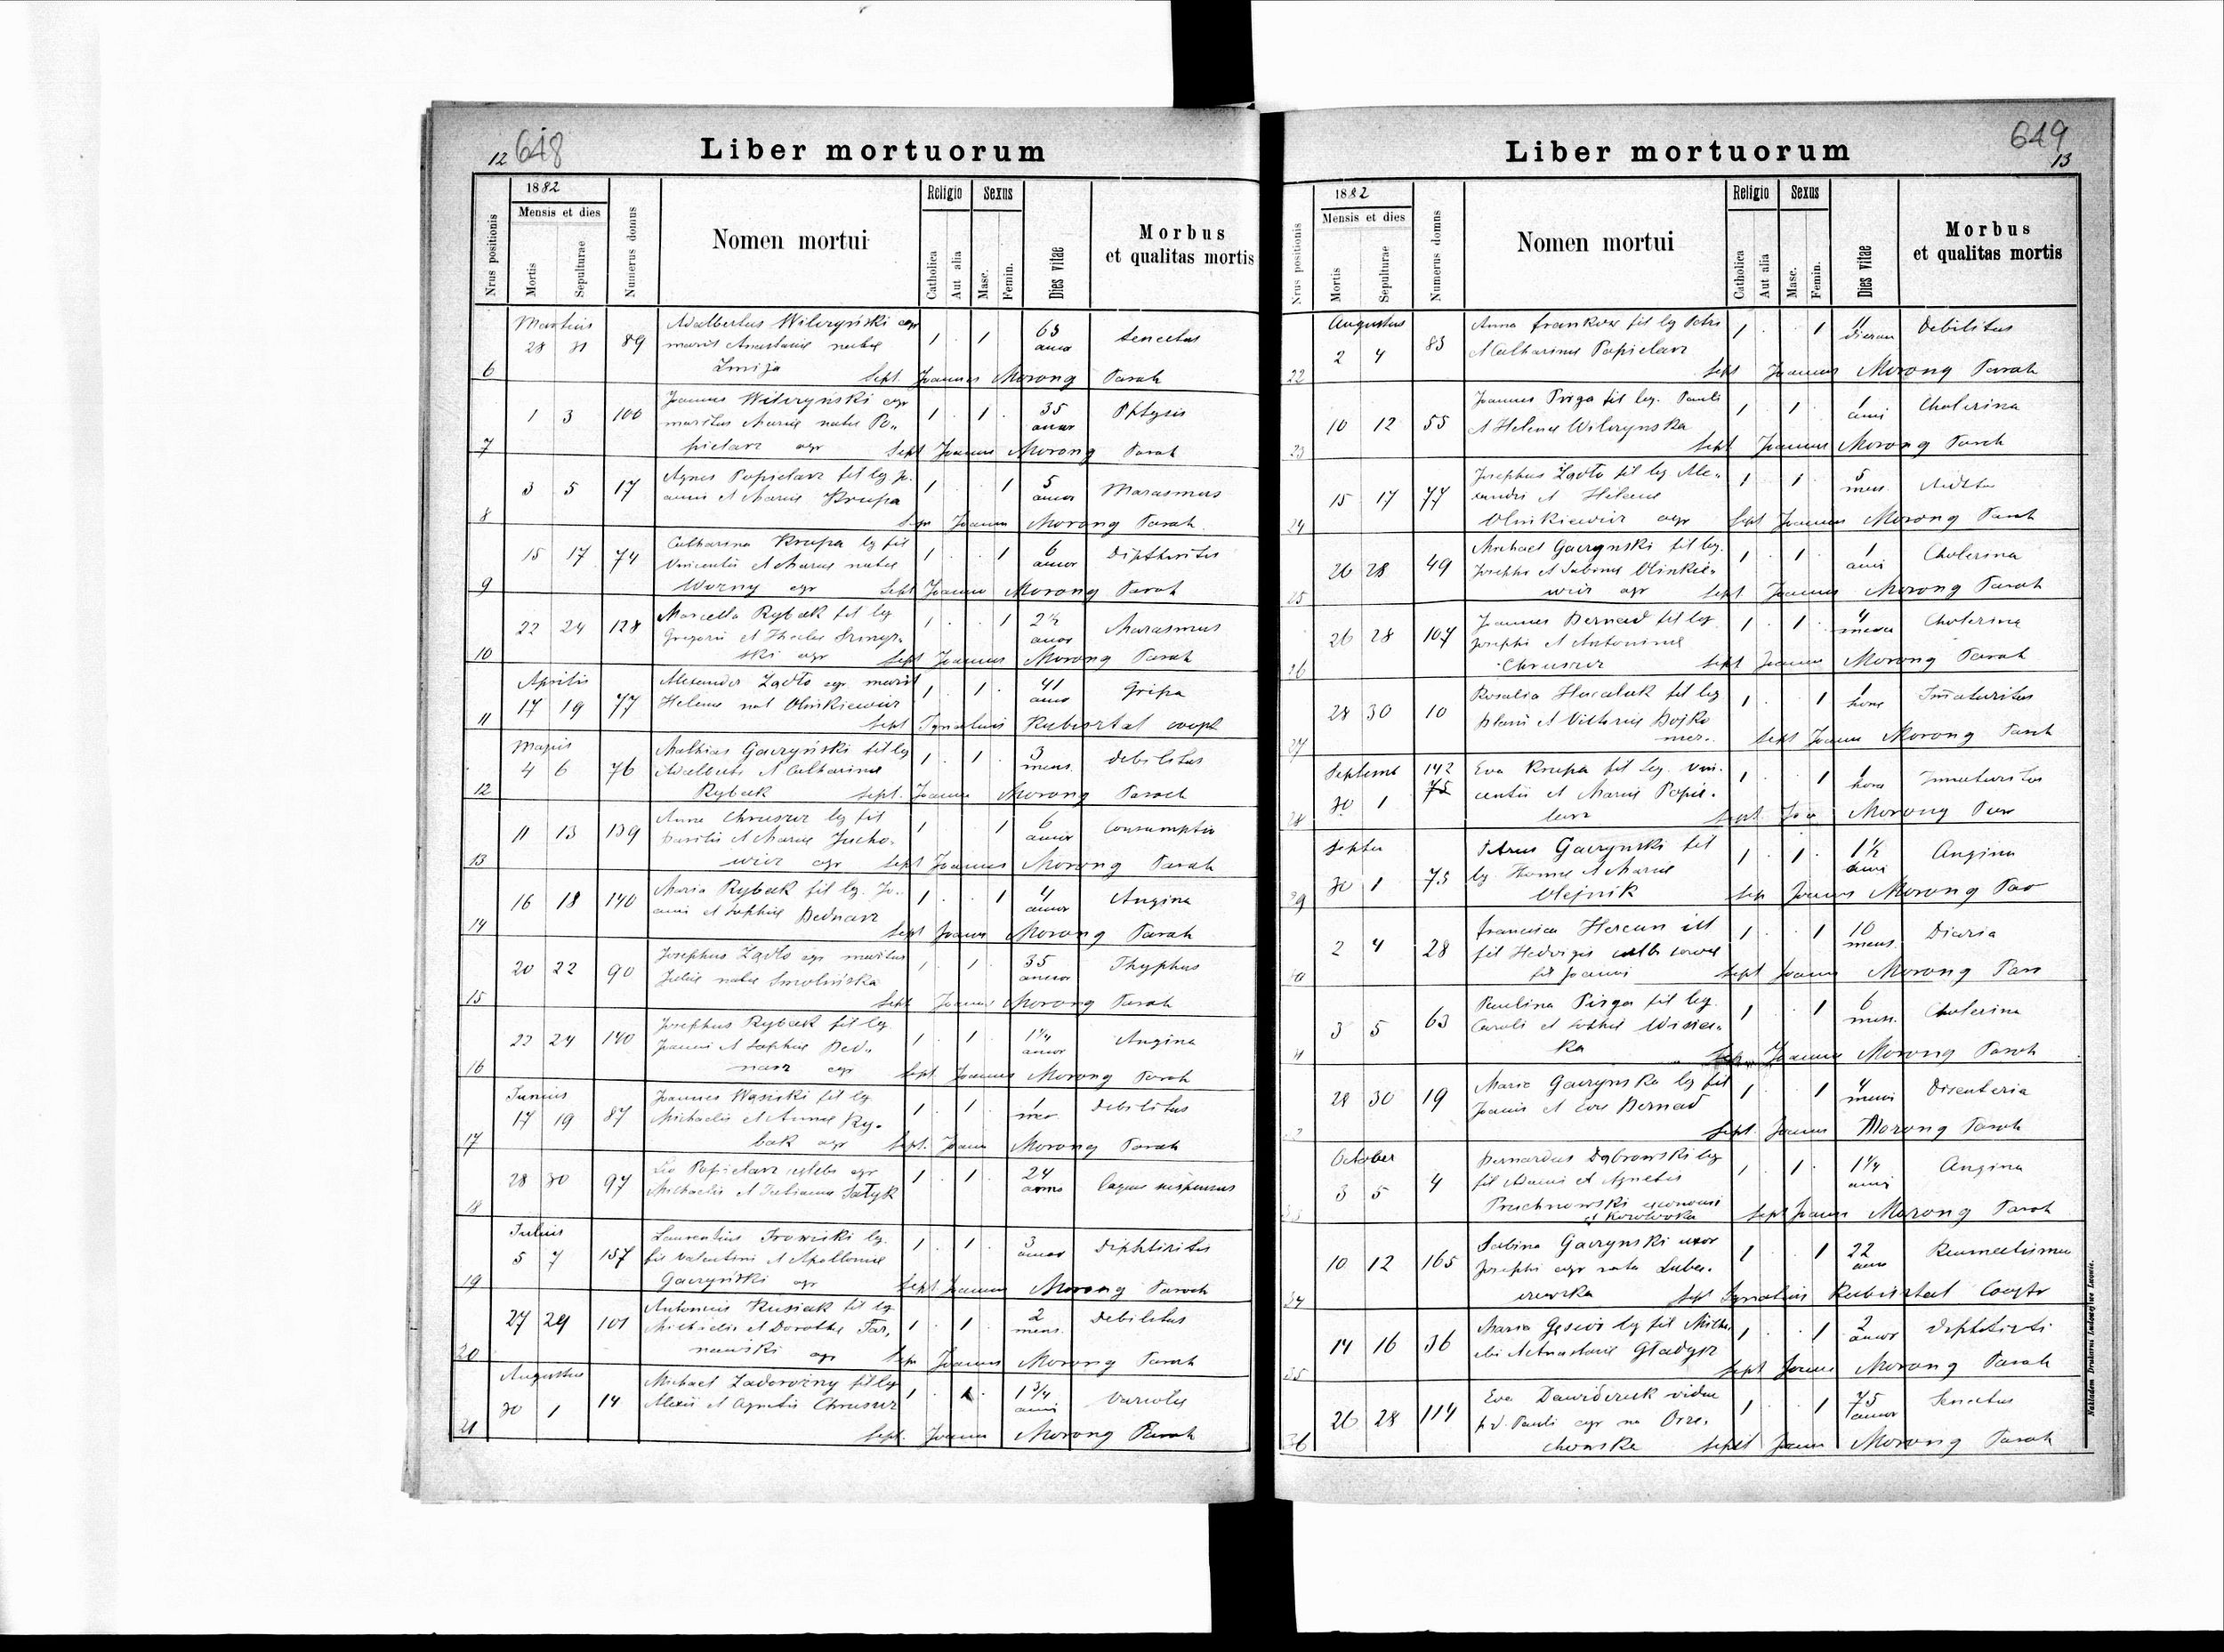 12 648
Liber mortuorum
Nrus positionis
1882
Mensis et dies
Mortis
Sepulturae
Numerus domus
Nomen mortui
Religio
Catholica
Aut alia
Sexus
Masc.
Femin.
Dies vitae
Morbus
et qualitas mortis
Martius
28 31 89 Adalbertus Wilczyński agr 1 1 65 annor Senectus
marit Anastasiae natae
6 Żmija Sept. Joannes Morong Paroh
1 3 100 Joannes Wilczyński agr 1 1 35 annor Phtysis
maritus Mariae natae Po„
7 pielarz agr Sept Joannes Morong Paroh
3 5 17 Agnes Popielarz fil leg Jo. 1 1 5 annor Marasmus
annis et Mariae Krupa
8 Sep Joannes Morong Paroh
15 17 74 Catharina Krupa leg fil 1 1 6 annor Diphtheritis
Vincentii et Mariae natae
9 Worzny agr Sept Joannes Morong Paroh
22 24 128 Marcella Rybak fil leg 1 1 2½ annor Marasmus
Gregorii et Theclae
10 ski agr Sept Joannes Morong Paroh
Aprilis
17 19 77 Alexander Żądło agr marit 1 1 41 anno Gripa
Helenae nat Olinkiewicz
11 Sept Ignatius Rubisztal coop
Majus
4 6 76 Mathias Gaczyński fil leg 1 1 3 mens. debilitas
Adalberti et Catharinae
12 Rybak Sept. Joannes Morong Paroch
11 13 139 Anna Chruszcz leg fil 1 1 6 annor Consumptio
Basilii et Mariae Jucho„
13 wicz agr Sept Joannes Morong Paroh
16 18 140 Maria Rybak fil leg. Jo„ 1 1 4 annor Angina
annis et Sophiae Bednarz
14 Sept Joannes Morong Paroh
20 22 90 Josephus Żądło agr maritus 1 1 35 annor Thyphus
Juliae natae Smolińska
15 Sept Joannes Morong Paroh
22 24 140 Josephus Rybak fil leg 1 1 1¼ annor Angina
Joannis et Sophiae Bed„
16 narz agr Sept Joannes Morong Paroh
Junius
17 19 87 Joannes Wąsicki fil leg 1 1 1 debilitas
Michaelis et Annae Ry„
17 bak agr Sept. Joannes Morong Paroh
28 30 97 Leo Popielarz caelebs agr 1 1 24 anno laqueo suspensus
Michaelis et Julianna Sałyk
18
Julius
5 7 157 Laurentius leg. 1 1 3 annor Diphtiritis
fil Valentini et Apolloniae
19 Gaczyński agr Sept Joannes Morong Paroch
27 29 101 Antonius Kusiak fil leg 1 1 2 mens. debilitas
Michaelis et Dorothea Tar„
20 nawski agr Sep Joannes Morong Paroh
Augustus
30 1 14 Michael Zadorożny fil leg 1 1 1¾ anni Variolae
Alexii et Agnetis Chruszcz
21 Sept. Joannes Morong Paroh
649
13
Liber mortuorum
Nrus positionis
1882
Mensis et dies
Mortis
Sepulturae
Numerus domus
Nomen mortui
Religio
Catholica
Aut alia
Sexus
Masc.
Femin.
Dies vitae
Morbus
et qualitas mortis
Augustus
2 4 83 Anna Frankow fil leg Petri 1 1 11 dierum debilitas
et Catharinae Popielarz
22 Sept Joannes Morong Paroh
10 12 55 Joannes Pirga fil leg. Pauli 1 1 1 anni Cholerina
et Helenae Wilczynska
23 Sept Joannes Morong Paroh
15 17 77 Josephus Żądło fil leg Ale„ 1 1 5 mens.
xandri et Helenae
24 Olinkiewicz agr Sept Joannes Morong Paroh
26 28 49 Michael Gaczynski fil leg. 1 1 1 anni Cholerina
Josephi et Sabinae Olinkie„
25 wicz agr Sept Joannes Morong Paroh
26 28 107 Joannes Bernad fil leg 1 1 4 Cholerina
Josephi et Antoninae
26 Chruszcz Sept Joannes Morong Paroh
28 30 10 Rosalia fil leg 1 1 1 hora Immaturitas
et Victoriae Bojko
27 Sept Joannes Morong Paroh
Septemb 142 Eva Krupa fil leg. Vin. 1 1 1 hora Immaturitas
30 1 75 centii et Mariae Popie„
28 larz Sept. Morong Par
Septer
30 1 75 Petrus Gaczynski fil 1 1 1½ anni Angina
leg Thomae et Mariae
29 Olejnik Sep Joannes Morong Par
2 4 28 Francisca ill 1 1 10 mens.
fil Hedvigis
30 fil Joannis Sept Joannes Morong Par
3 5 63 Paulina Pirga fil leg. 1 1 6 mens. Cholerina
Caroli et Sophiae
31 ka Joannes Morong Paroh
28 30 19 Maria Gaczynska leg fil 1 1 4 Disenteria
Joannis et Evae Bernad
32 Sept. Joannes Morong Paroh
October
3 5 4 Bernardus Dąbrowski leg 1 1 1¼ anni Angina
fil Adami et Agnetis
Pruchnowski economi
33 Sept Joannes Morong Paroh
10 12 165 Sabina Gaczynski uxor 1 1 22 anno
Josephi agr nata Luba„
34 czewska Sept Ignatius Rubisztal Cooptr
14 16 36 Maria leg fil Micha 1 1 2 annor
elis et Anastasiae Gładysz
35 Sept Joannes Morong Paroh
26 28 114 Eva Dawidczuk vidua 1 1 75 annor Senectus
p.d. Pauli agr na Orze„
36 chowska Sept Joannes Morong Paroh
Nakładem Drukarni Ludowej we Lwowie.